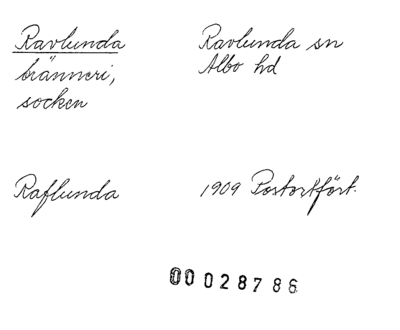 Ravlunda
bränneri,
socken
Ravlunda sn
Albo hd
Raflunda
1909 Postortfört.
00028786